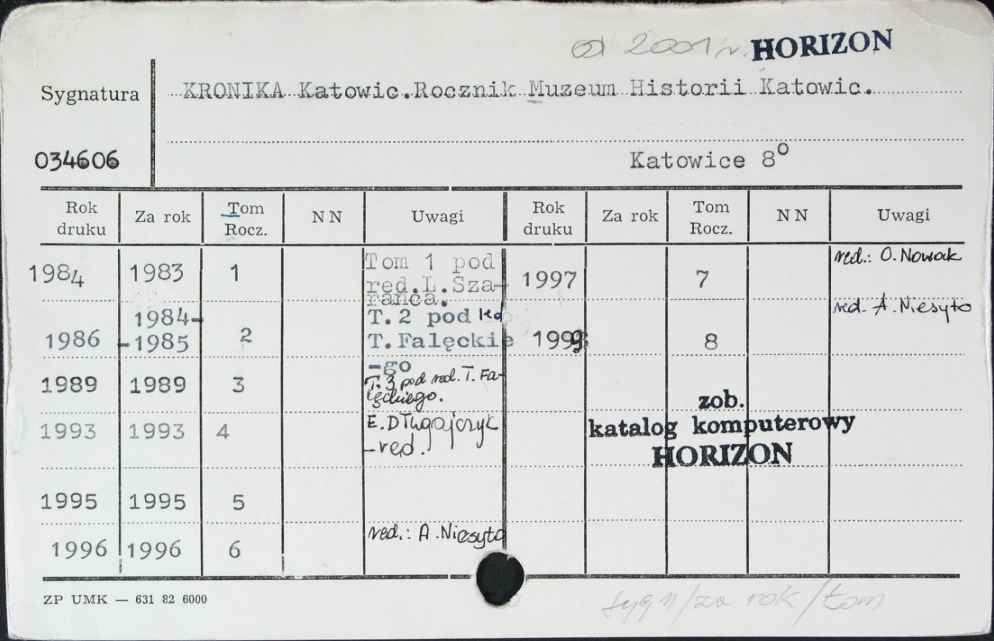 od 2001 r. HORIZON
Sygnatura
KRONIKA Katowic.Rocznik Muzeum Historii Katowic.
034606
Katowice 8°
Rok druku Za rok Tom Rocz. NN Uwagi Rok druku Za rok Tom Rocz. NN Uwagi
1984 1983 1 Tom 1 pod
red.L.Sza-
rańca.
1997 7 red.: O. Nowak
1986 1984-
-1985 2 T.2 pod red
T.Falęckie
-go
1999 8 red. A. Niesyto
1989 1989 3 T.3 pod red. T. Fa-
lęckiego.
1993 1993 4 E. Długajczyk
-red.
zob.
katalog komputerowy
HORIZON
1995 1995 5
1996 1996 6 red.: A. Niesyto
ZP UMK — 631 82 6000
sygn/za rok/tom